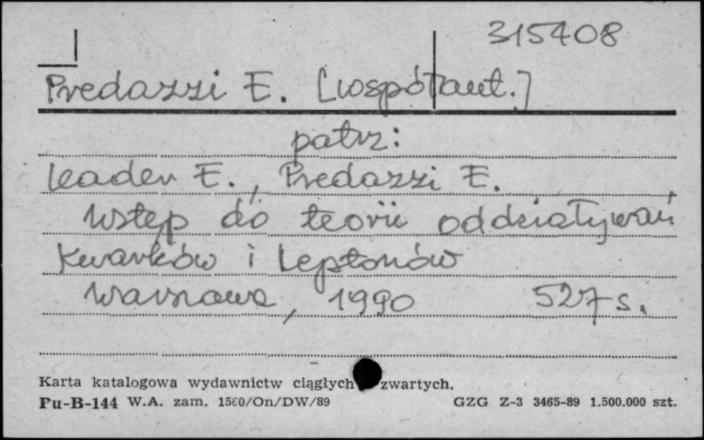 315408
Predazzi E. [współaut.]
patrz:
Leader E., Predazzi E.
Wstęp do teorii oddziaływań
kwarków i leptonów
Warszawa, 1990 527 s.
Karta katalogowa wydawnictw ciągłych zwartych.
Pu-B-144 W.A. zam. 1560/On/DW/89 GZG Z-3 3465-89 1.500.000 szt.